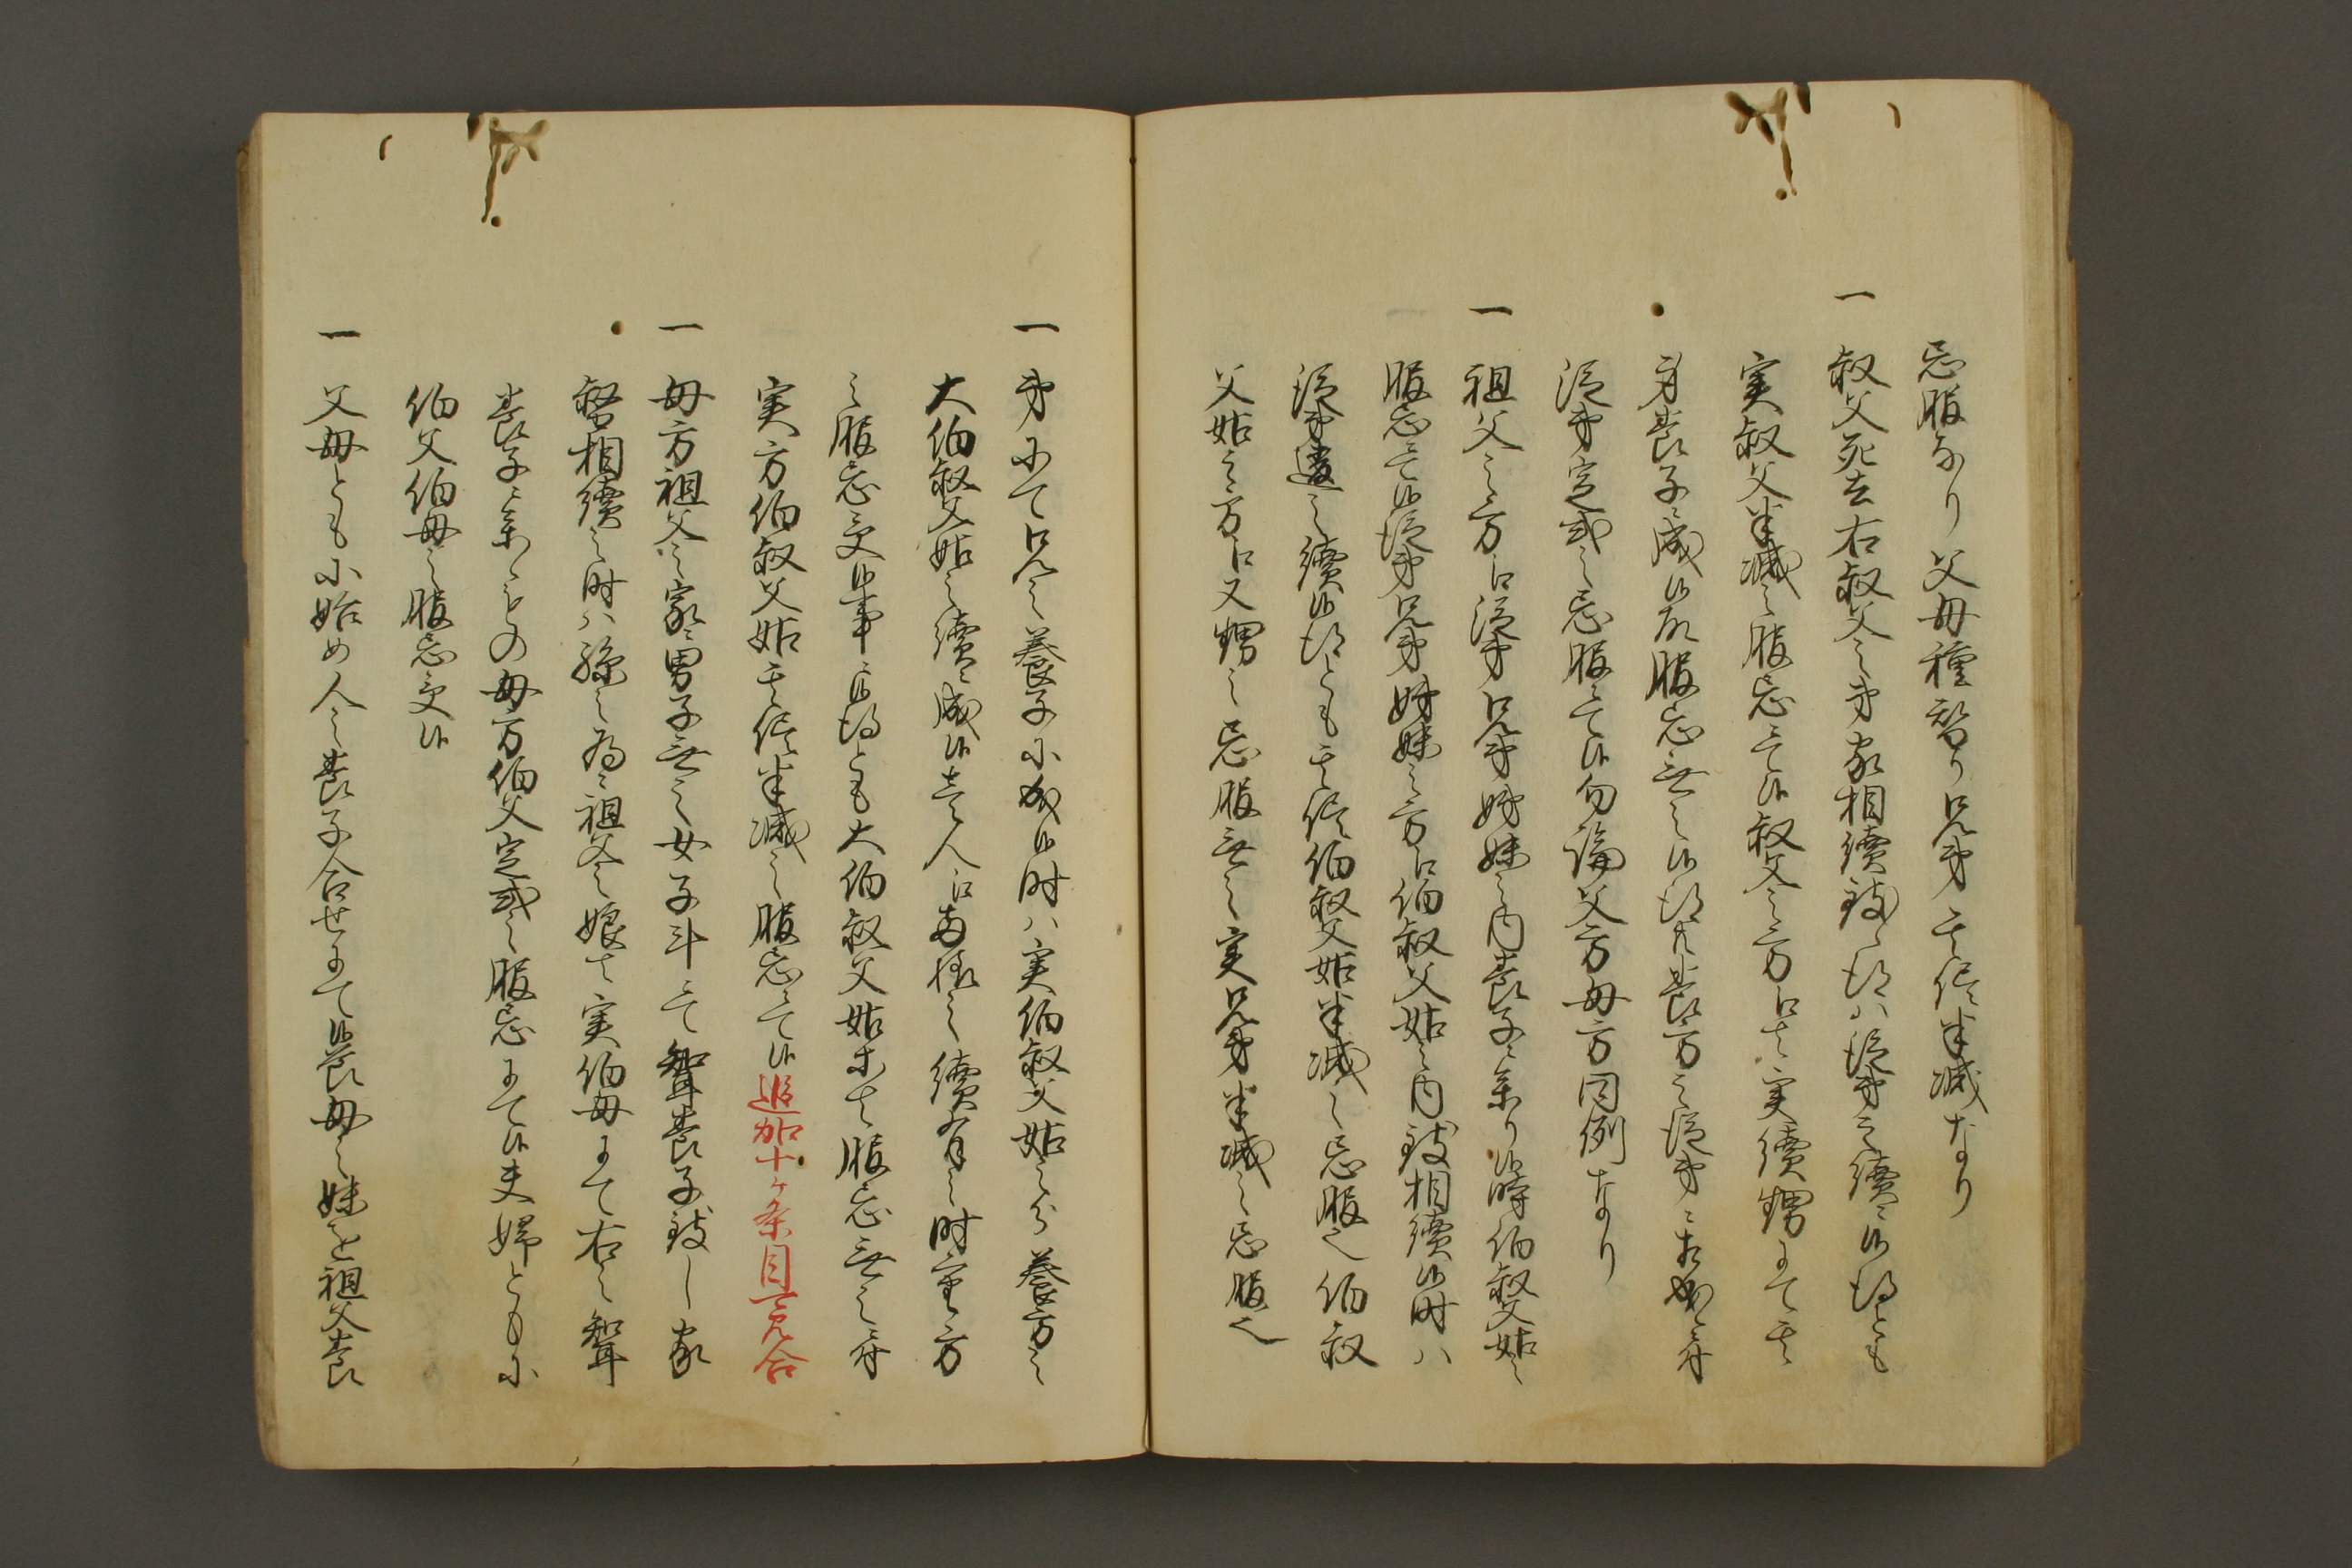 忌服なり父母種替り兄弟其侭半減なり
一 叔父死去右叔父之弟家相続致候ハ従弟之続ニ候得とも
実叔父半減之服忌ニて候叔父之方ゟ者実続甥にて其
身養子ニ成候故服忌無之候得共養方之従弟ニ相成候付
従弟定式之忌服ニて候勿論父方母方同例なり
一 祖父之方ゟ従弟兄弟姉妹之内養子ニ参り候時伯叔父姑之
服忌ニて候従弟兄弟姉妹之方ゟ伯叔父姑之内致相続候時ハ
従弟違之続候得とも其侭伯叔父姑半減之忌服也伯叔
父姑之方ゟ又甥之忌服無之実兄弟半減之忌服也
一 弟にて兄之養子に成候時ハ実伯叔父姑之分養方之
大伯叔父姑之続ニ成候壱人ゟ両様之続有之時重キ方
之服忌受候事ニ候得とも大伯叔父姑ニ者服忌無之ニ付
実方伯叔父姑其侭半減之服忌ニて候追加十ケ条目見合
一 母方祖父之家ニ男子無之女子斗ニて聟養子致し家
督相続之時ハ孫之為ニ祖父之娘者実伯母にて右之聟
養子ニ参ものも母方伯父定式之服忌にて候夫婦ともに
伯父伯母之服忌受候
一 父母ともに始め人之養子合せにて候養母之妹を祖父養